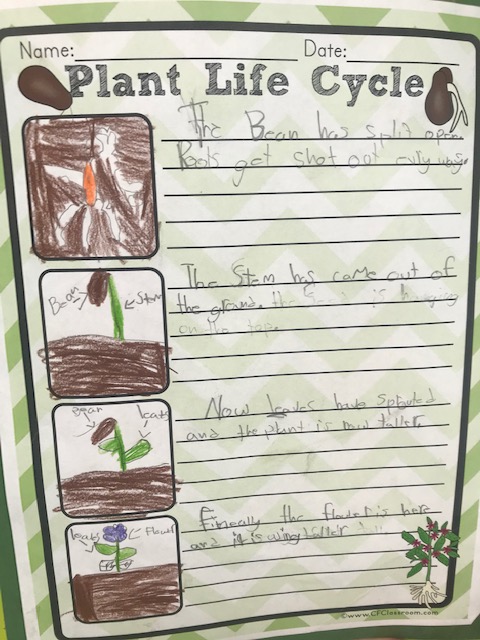 Name: Date:
Plant Life Cycle
The Bean has split open.
Roots get shot out evry way.
The Stem has came out of
the ground. the Seed is hanging
on the top.
Bean Stem
Now leaves have sprouted
and the plant is now taller.
Bean leafs
fineally the flower is here
and it is taller
leafs Flower
©www.CFClassroom.com